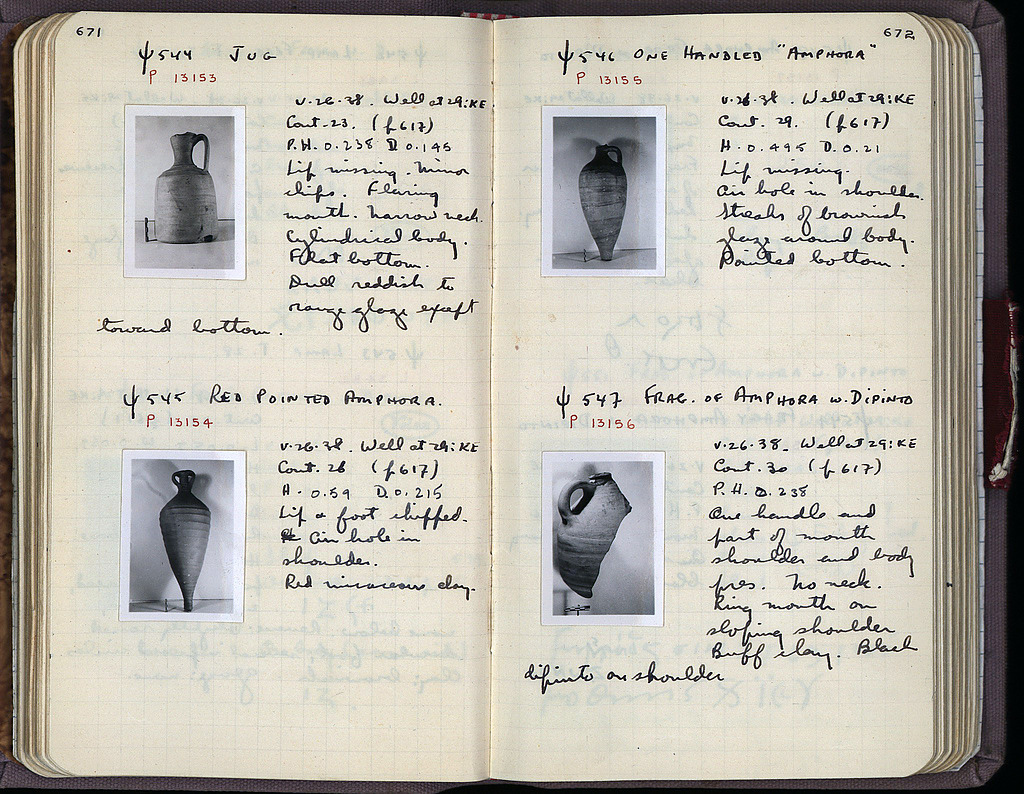 671
ψ544 JUG
P 13153
V.26.38. Well at 29:KE
Cont. 23. (p617)
P.H. 0.238 D. 0.145
Lip missing. Minor
chips. Flaring
mouth. Narrow neck.
Cylindrical body.
Flat bottom.
Dull reddish to
orange glaze except
toward bottom.
ψ545 RED POINTED AMPHORA.
P 13154
V.26.38. Well at 29:KE
Cont. 26 (p617)
H. 0.59 D. 0.215
Lip & foot chipped.
Air hole in
shoulder.
Red micaceous clay.
672
ψ546 ONE HANDLED "AMPHORA"
P 13155
V.26.38. Well at 29:KE
Cont. 29. (p617)
H. 0.495 D. 0.21
Lip missing.
Air hole in shoulder.
Streaks of brownish
glaze around body.
Pointed bottom.
ψ547 FRAG. OF AMPHORA W. DIPINTO
P 13156
V.26.38. Well at 29:KE
Cont. 30 (p617)
P.H. 0.238
One handle and
part of mouth
shoulder and body
pres. No neck.
Ring mouth on
sloping shoulder
Buff clay. Black
dipinto on shoulder